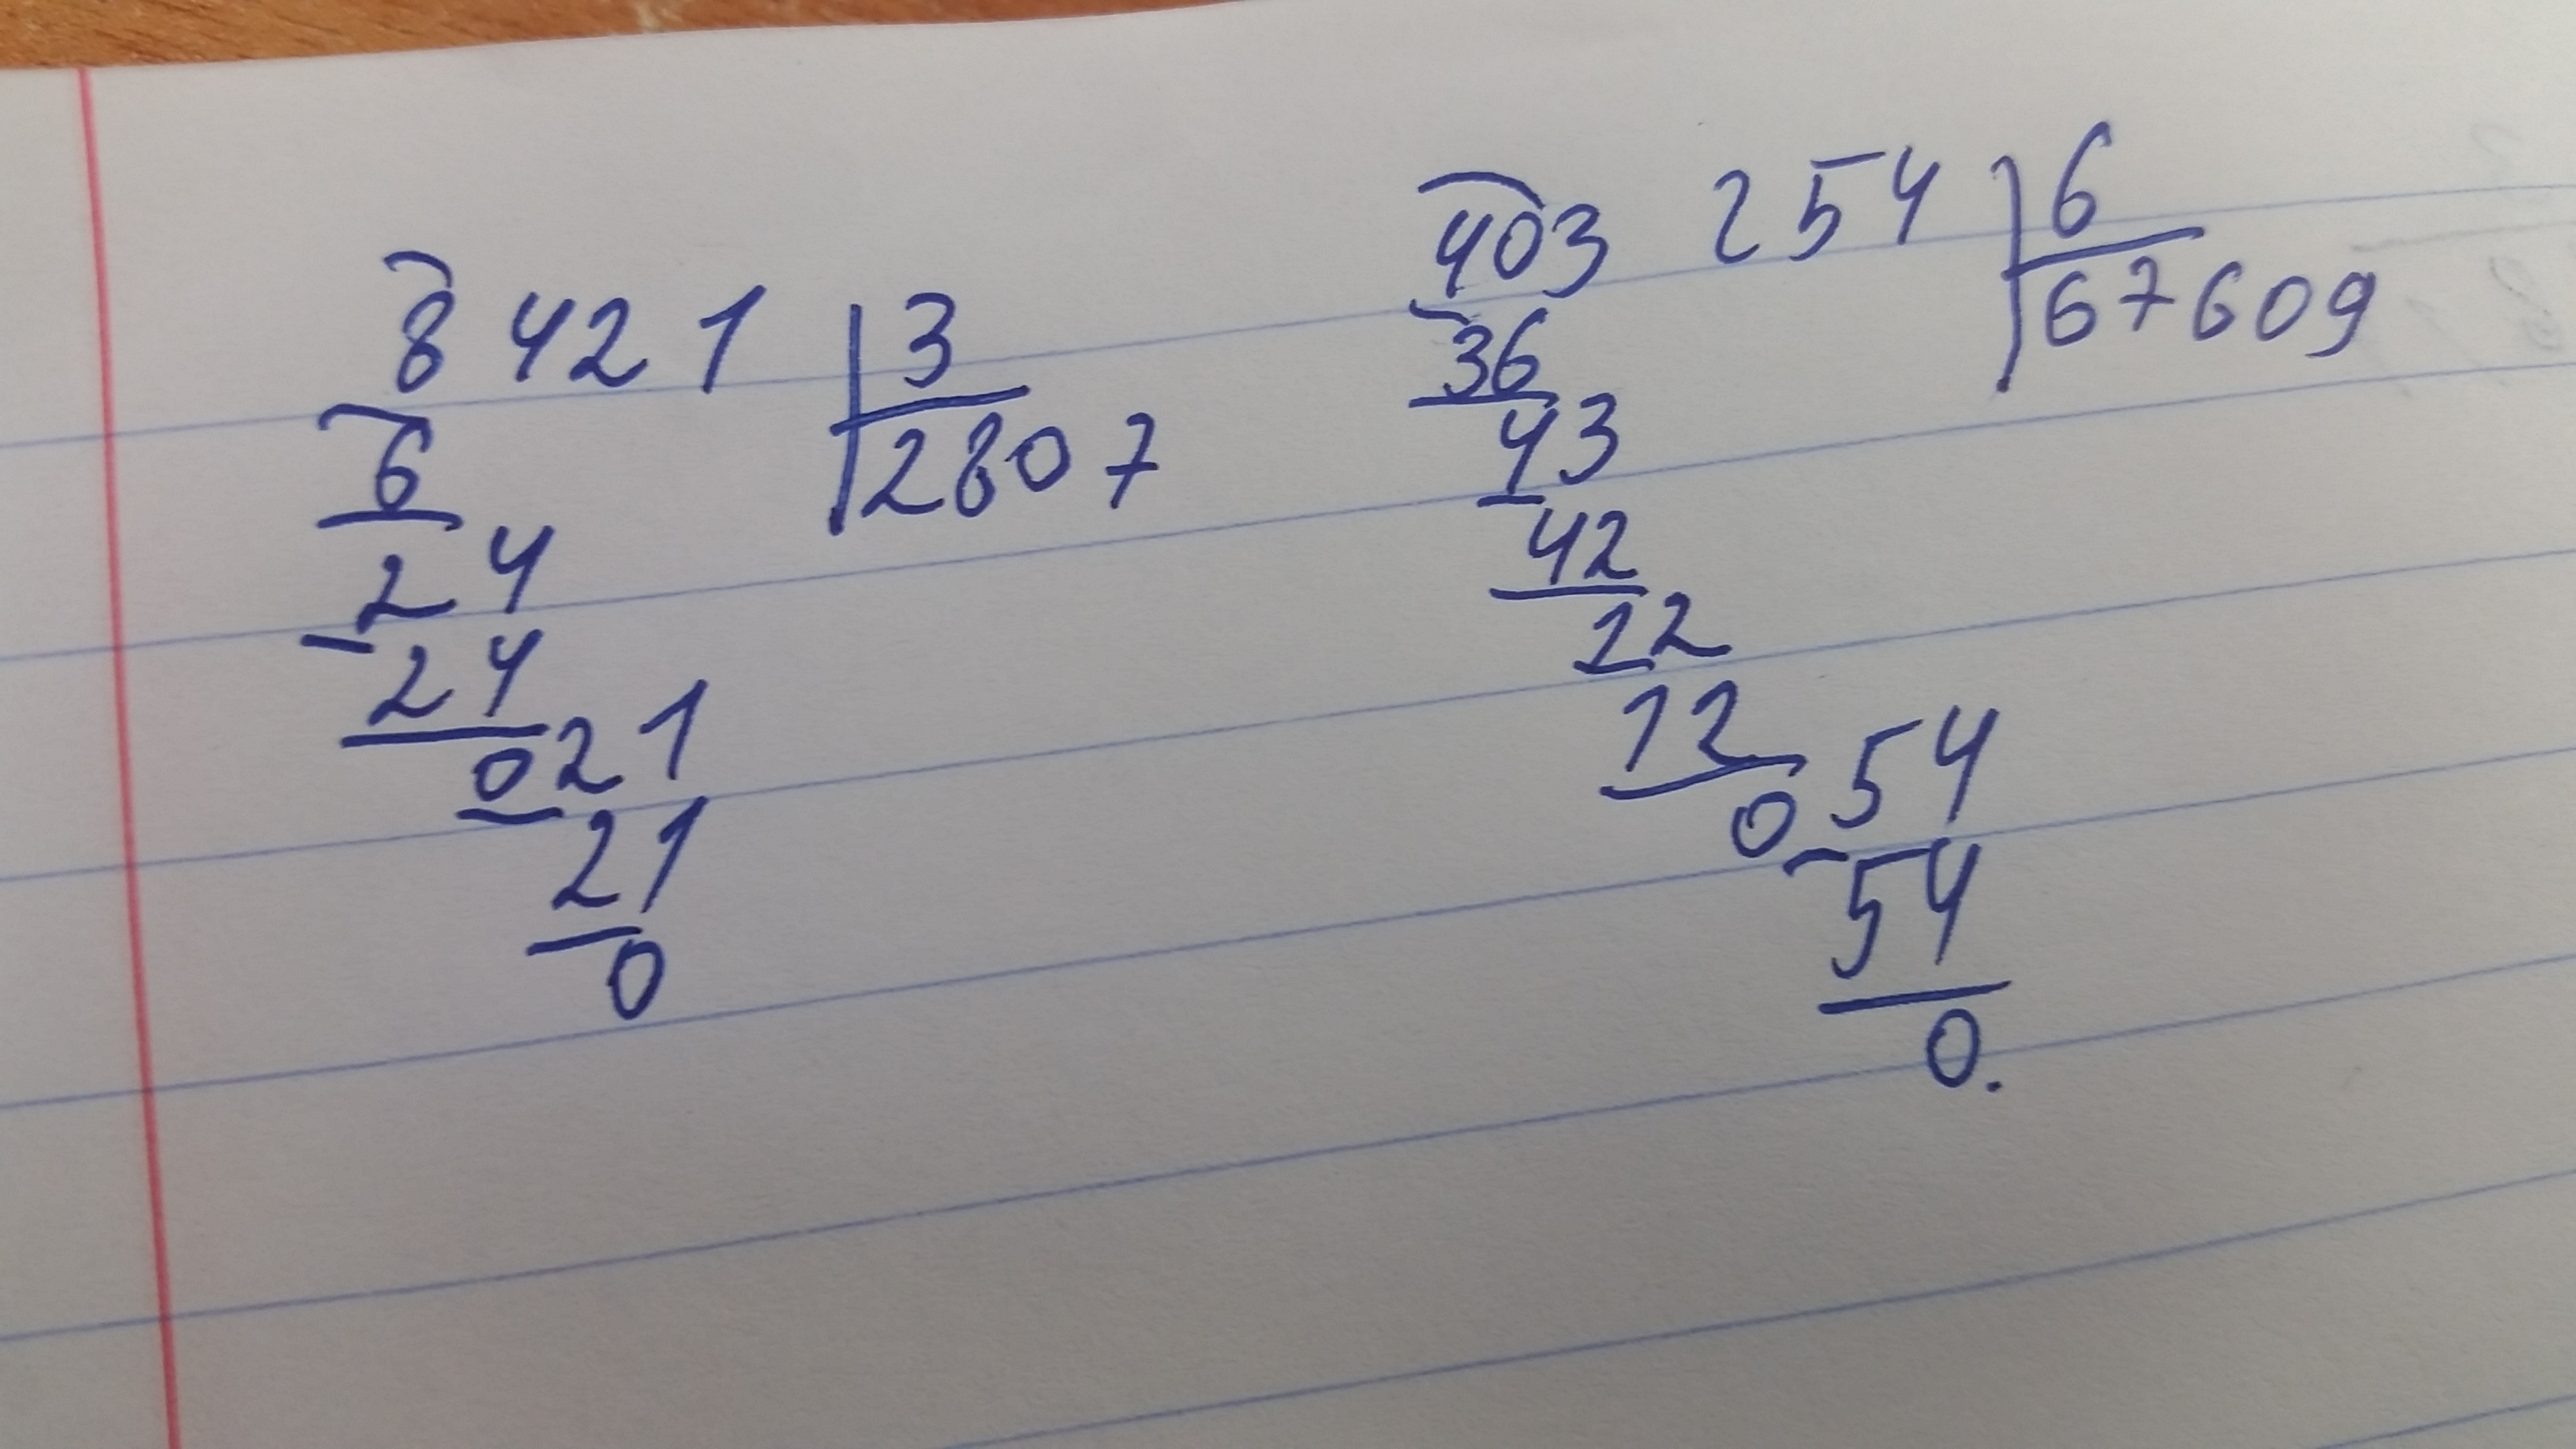 8 421 | 3
- 6 | 2807
24
- 24
021
- 21
0
403 254 | 6
- 36 | 67609
43
- 42
12
- 12
0 54
- 54
0.